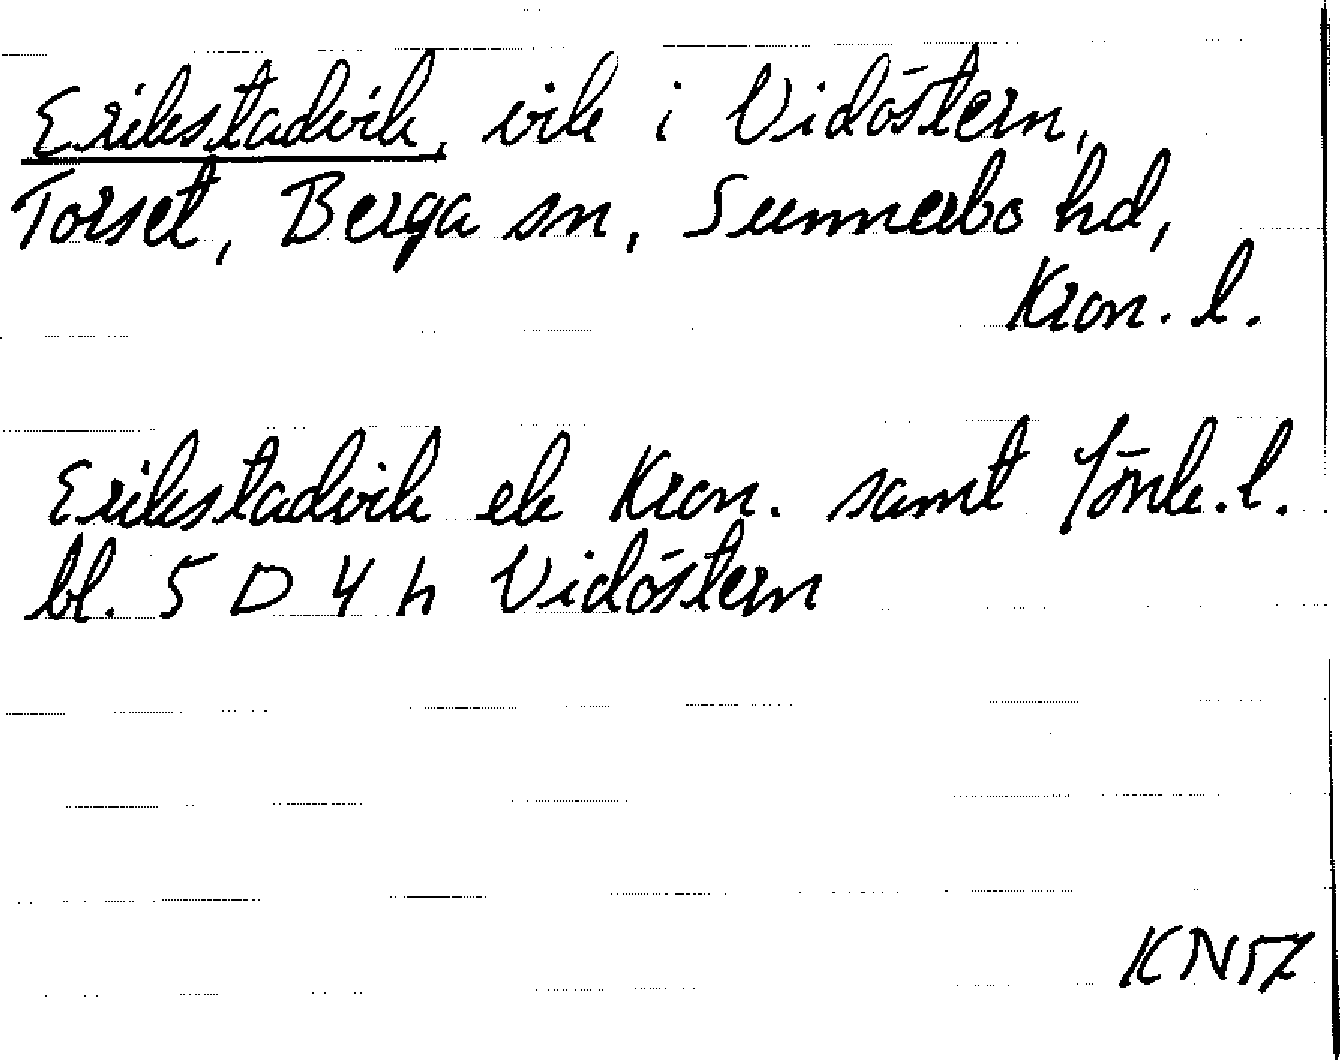 Erikstadvik, vik i Vidöstern,
Torset, Berga sn, Sunnerbo hd,
Kron. l.
Erikstadvik ek Kron. samt Jönk. l.
bl. 5 D 4 h Vidöstern